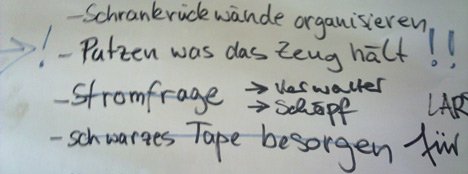 - Schrankrückwände organisieren
! - Putzen was das Zeug hält !!
- Stromfrage → Verwalter
→ Schöpf
- schwarzes Tape besorgen für